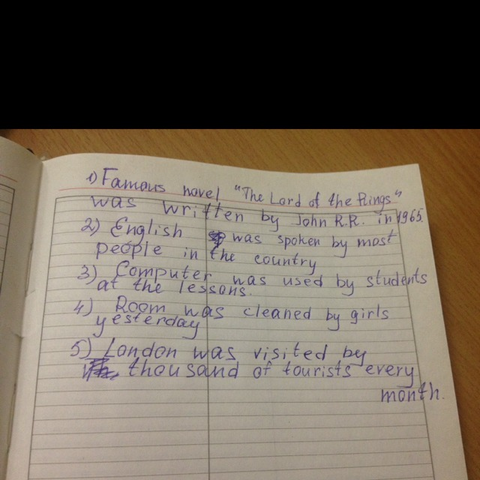 1) Famous novel "The Lord of the Rings"
was written by John R.R. in 1965.
2) English was spoken by most
people in the country
3) Computer was used by students
at the lessons.
4) Room was cleaned by girls
yesterday
5) London was visited by
thousand of tourists every
month.